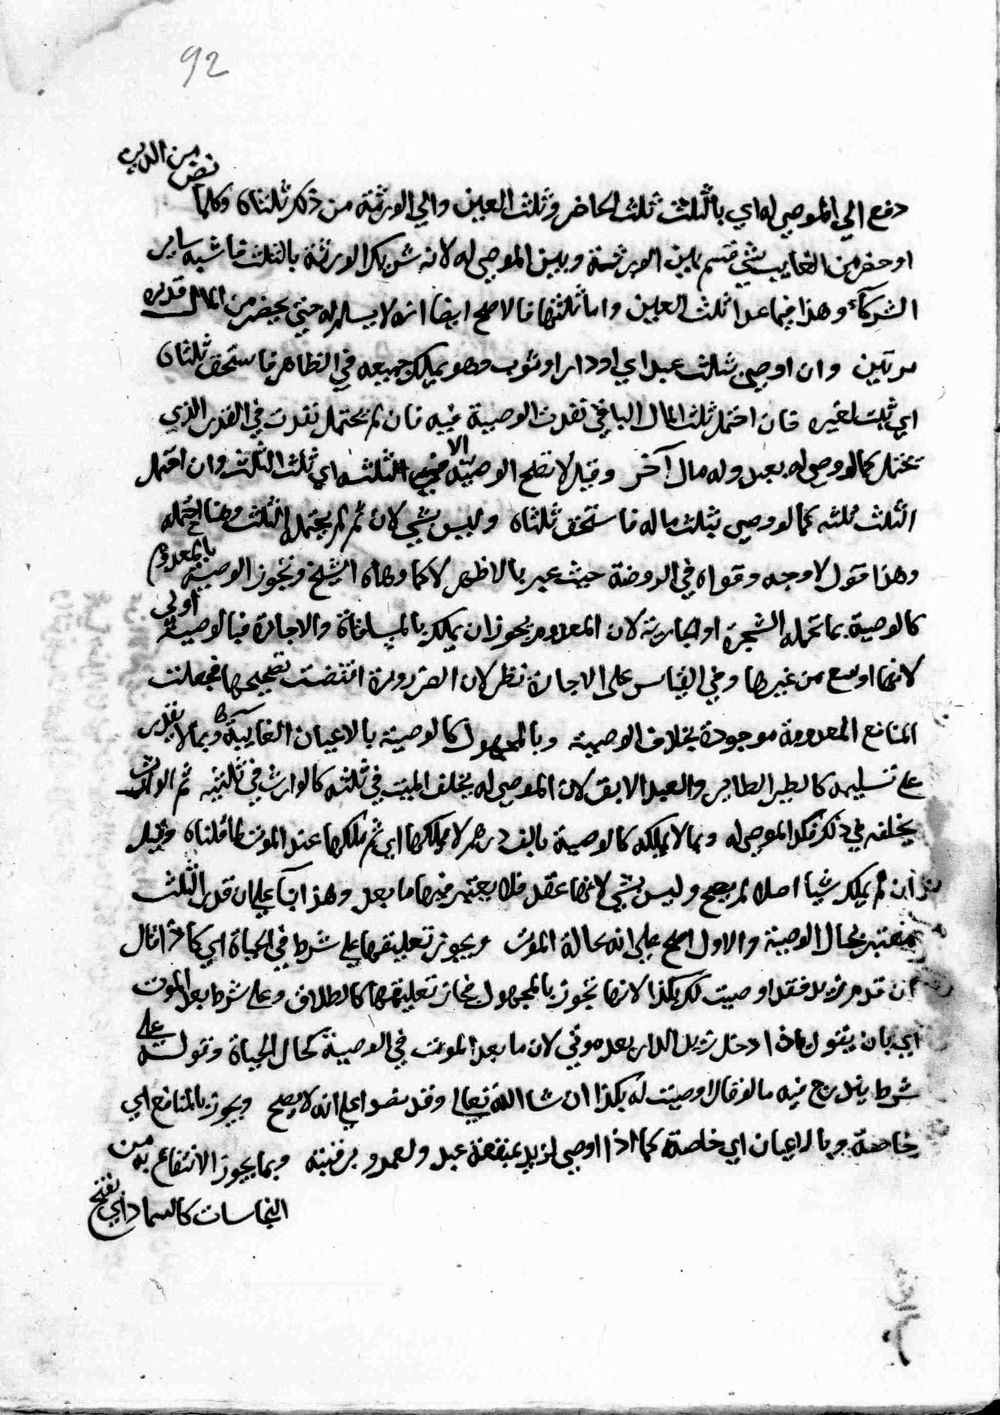 92
دفع الي الموصي له اي بالثلث ثلث الحاضر وثلث العين والي الورثة من ذكر ثلثان وكلما نض من الدين
او حضر من الغايب شي قسم بين الورثة وبين الموصي له لانه شريك الورثة بالثلث فاشبه ساير
الشركآء وهذا فيما عدا ثلث العين واما ثلثها فالاصح ايضا انه لا يسلم له حتي يحضر من المال قدره
مرتين وان اوصي بثلث عبد اي او دار او ثوب وهو يملك جميعه في الظاهر فاستحق ثلثان
اي ثبت لغيره فان احتمل ثلث المال الباقي نفذت الوصية فيه فان لم يحتمل نفذت في القدر الذي
يحتمل كما لو وصي له بعبد وله مال آخر وقيل لا تصح الوصية الا في ثلثه اي ثلث الثلث وان احتمل
الثلث ثلثه كما لو وصي بثلث ماله فاستحق ثلثاه وليس بشي لان ثم لم يحتمله الثلث وهنا احتمله
وهذا قول لا وجه وقواه في الروضة حيث عبر بالاظهر لا كما وهاه الشيخ وتجوز الوصية بالمعدوم
كالوصية بما تحمله الشجرة او الجارية لان المعدوم يجوز ان يملك بالمساقاة والاجارة فبالوصية اولي
لانها اوسع من غيرها وفي القياس علي الاجارة نظر لان الضرورة اقتضت تصحيحها فجعلت
المنافع المعدومة موجودة بخلاف الوصية وبالمجهول كالوصية بالاعيان الغايبة وبما لا يقدر
علي تسليمه كالطير الطاير والعبد الابق لان الموصي له يخلف الميت في ثلثه كالوارث في ثلثيه ثم الوارث
يخلفه في ذلك فكذا الموصي له وبما لا يملكه كالوصية بالف درهم لا يملكها اي ثم ملكها عند الموت لما قلناه وقيل
ان لم يملك شيا اصلا لم يصح وليس بشي لانها عقد فلا يعتبر فيها ما بعد وهذا بنآ علي ان قدر الثلث
معتبر بحال الوصية والاول اصح علي انه بحالة الموت ويجوز تعليقها علي شرط في الحياة اي كما ذا قال
ان قدم زيد فقد اوصيت لك بكذا لانها تجوز بالمجهول فجاز تعليقها كالطلاق وعلي شرط بعد الموت
اي بان يقول اذا دخل زيد الدار بعد موتي لان ما بعد الموت في الوصية كحال الحياة وقوله علي
شرط يندرج فيه ما لو قال اوصيت له بكذا ان شا الله تعالي وقد نصوا علي انه لا يصح ويجوز بالمنافع اي
خاصة وبالاعيان اي خاصة كما اذا اوصي لزيد بمنفعة عبد ولعمرو برقبته وبما يجوز الانتفاع به من
النجاسات كالسماد اي بفتح